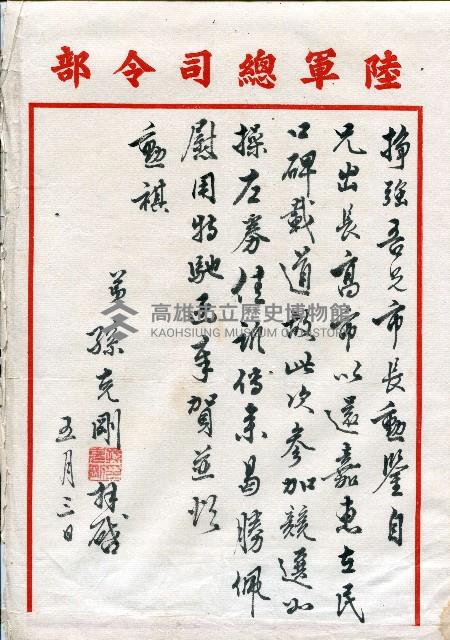 陸軍總司令部
掙強吾兄市長勳鑒自
兄出長高市以還嘉惠在民
口碑載道故此次參加競選必
操左券佳訊傳來曷勝佩
慰用特馳函奉賀並頌
勳祺
弟孫克剛拜啟
五月三日
高雄市立歷史博物館
KAOHSIUNG MUSEUM OF HISTORY